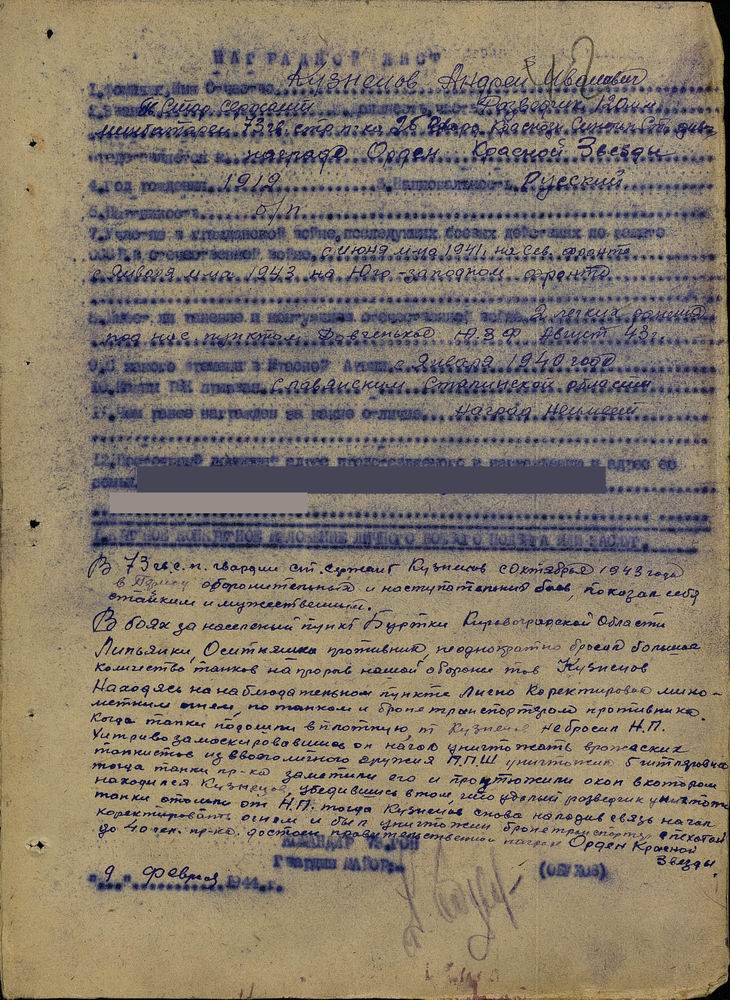 НАГРАДНОЙ ЛИСТ
1. Фамилия, Имя Отчество Кузнецов Андрей Иванович
Гв. Стар. Сержант Разведчик 120 мм.
минбатареи 73 гв. стр. п-ка 25 Красн. Синельн. стр. див.
к награде Орден Красной Звезды
4. Год рождения 1912 5. Национальность Русский
6. Партийность б/п
7. Участие в гражданской войне, последующих боевых действиях по защите
СССР и отечественной войне, с июня м-ца 1941г. на Сев. фронте
с Января м-ца 1943 на Юго-западном фронте
8. Имеет ли ранения и контузии в отечественной войне 2 легких ранения
под нас. пунктом Ю.З.Ф Август 43 г.
9. С какого времени в Красной Армии с Января 1940 года
10. Каким РВК призван Славянским Сталинской области
11. Чем ранее награжден за какие отличия Наград Неимеет
12. Постоянный домашний адрес представляемого к награждению и адрес его
семьи
1. КРАТКОЕ КОНКРЕТНОЕ ИЗЛОЖЕНИЕ ЛИЧНОГО БОЕВОГО ПОДВИГА ИЛИ ЗАСЛУГ
В 73 гв. с.п. гвардии ст. сержант Кузнецов с Октября 1943 года
в Период оборонительный и наступательных боев, показал себя
стайким и мужественным.
В боях за населеный пункт Буртки Кировоградской Области
Липьянки, Оситняшка противник, неоднократно бросал большое
количество танков на прорыв нашой обороне тов Кузнецов
Находясь на наблюдательном пункте Лично Коректировал мино-
метным огнем, по танкам и бронетранспортерам противника.
Когда танки подошли вплотную, т Кузнецов не бросил Н.П.
Хитро замаскировавшись он начал уничтожать вражеских
танкистов из своего личного оружия ППШ уничтожил 5 гитлеровцев
тогда танки пр-ка заметили его и проутюжили окоп в котором
находился Кузнецов, убедившись в том, что удалый разведчик уничтожен
танки отошли от Н.П. тогда Кузнецов снова наладив связь начал
коректировать огнем и был уничтожен бронетранспортер с пехотой
до 40 чел. пр-ка. достоен правительственной награды Орден Красной
Звезды.
КОМАНДИР 73 ГСП
Гвардии МАЙОР: (ОБУХОВ)
"9" Февраля 1944 г.